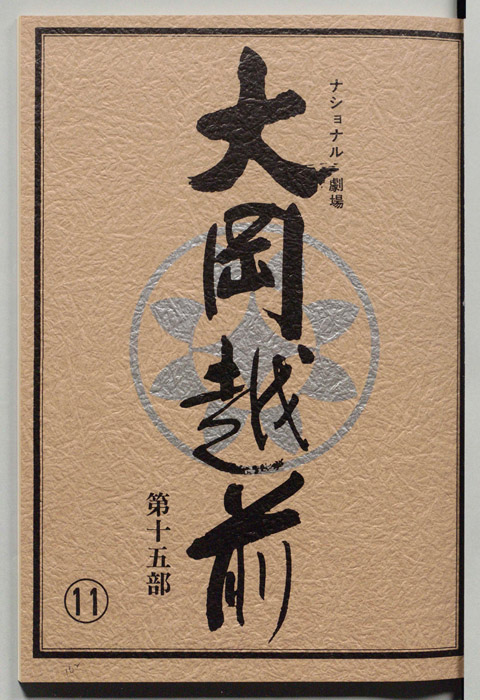 ナショナル劇場
大岡越前
第十五部
⑪